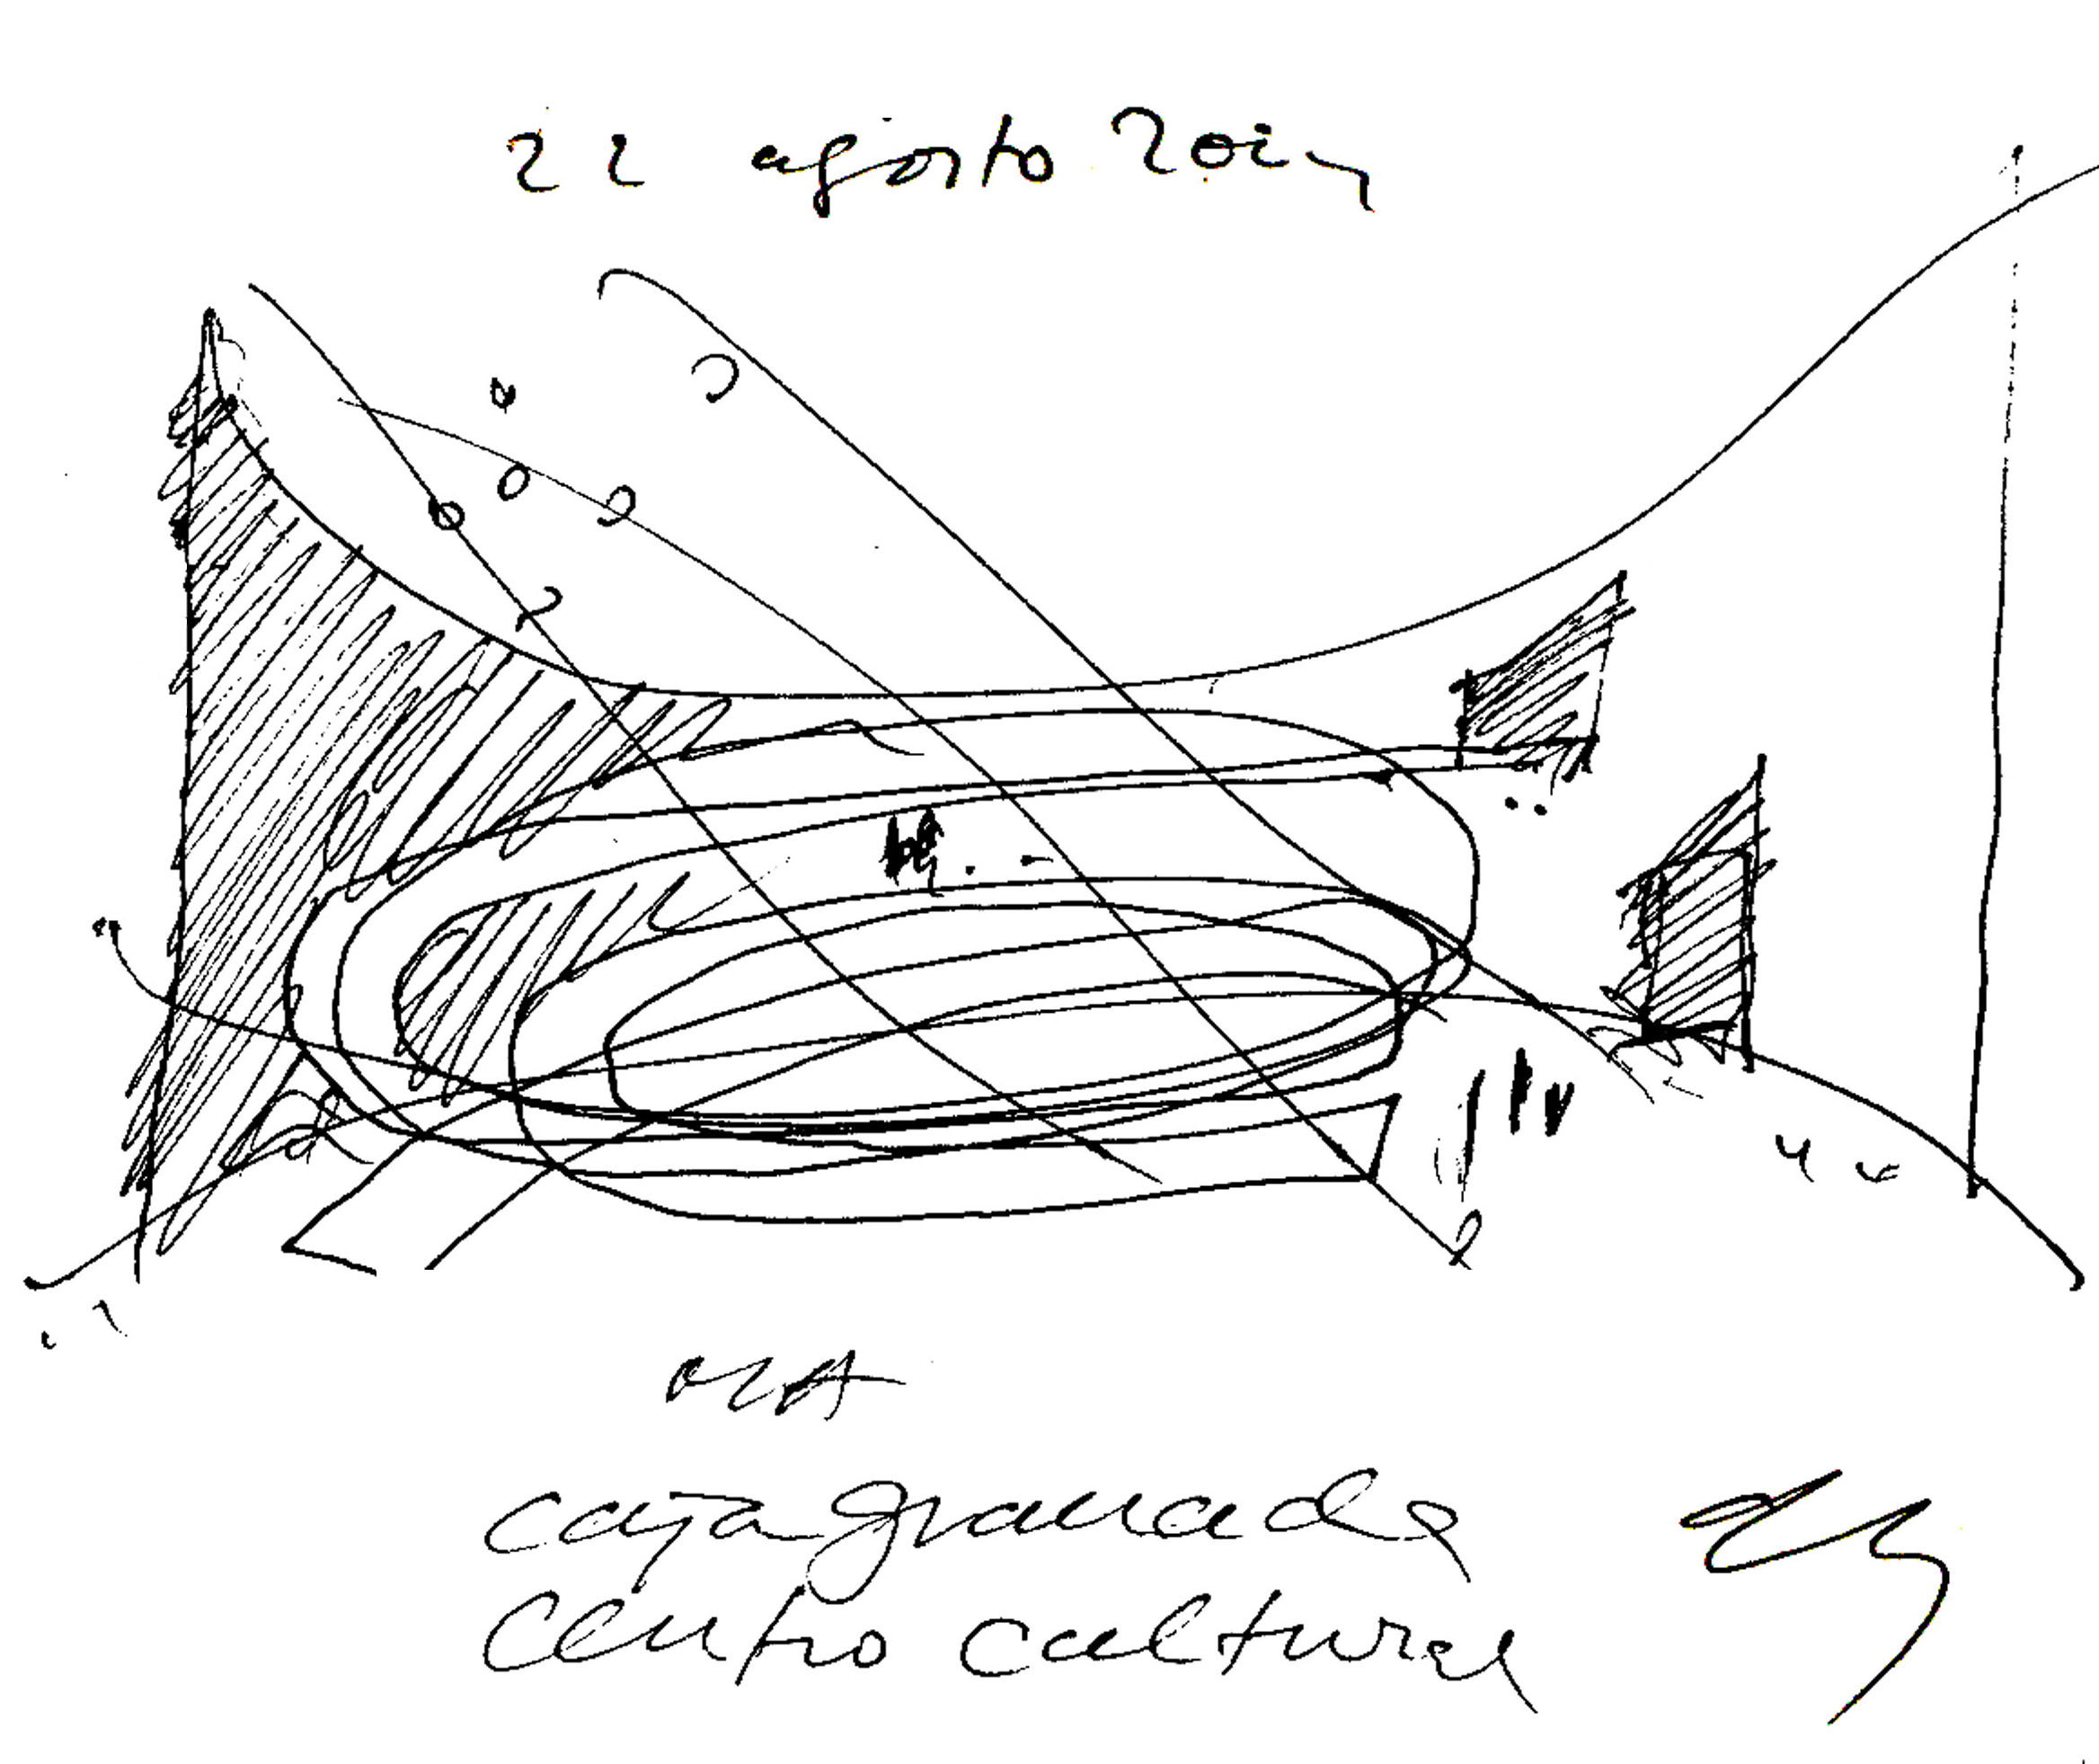 22 agosto
MA
caja granada
centro cultural